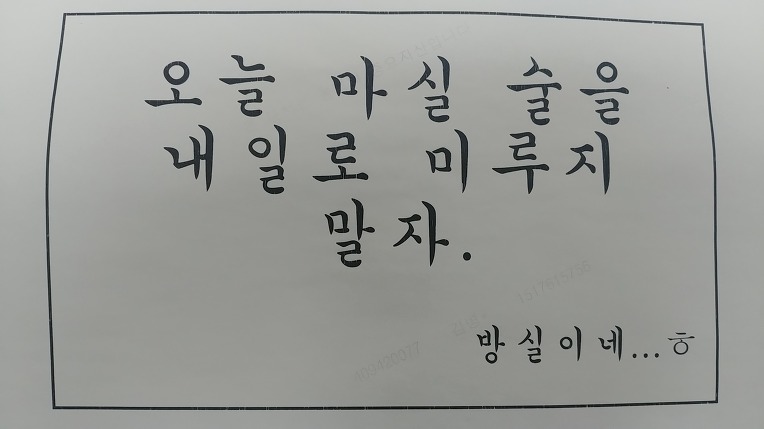 오늘 마실 술을
내일로 미루지
말자.
방실이네...ㅎ